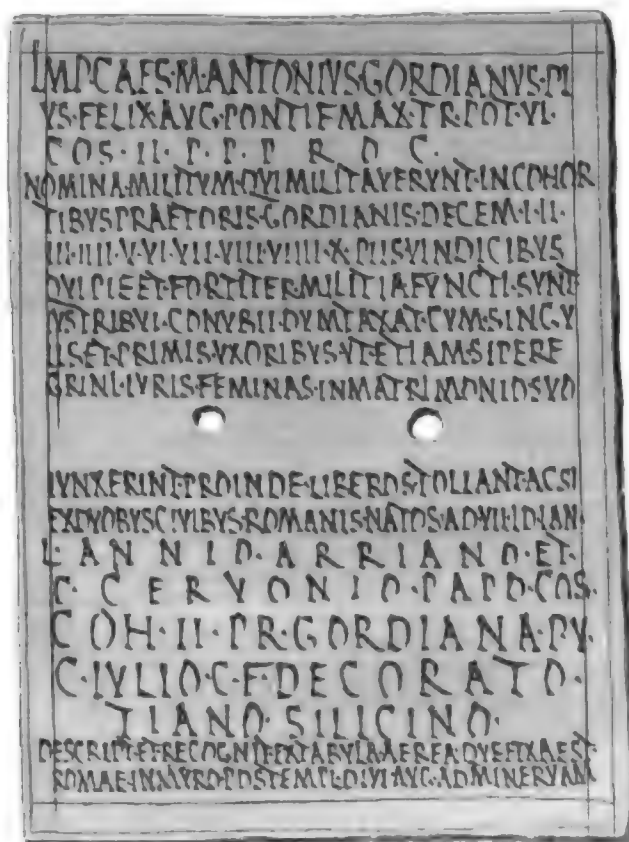 IMP·CAES·M·ANTONIVS·GORDIANVS·PI
VS·FELIX·AVG·PONTIF·MAX·TR·POT·VI·
COS·II·P·P·P R O C·
NOMINA·MILITVM·QVI MILITAVERVNT·IN COHOR
TIBVS PRAETORIS·GORDIANIS·DECEM·I·II·
III·IIII·V·VI·VII·VIII·VIIII·X·PIIS VINDICIBVS
QVI PIE ET·FORTITER MILITIA FVNCTI·SVNT
IVS TRIBVI·CONVBII·DVMTAXAT·CVM·SINGV
LIS ET·PRIMIS·VXORIBVS·VT·ETIAM·SI PERE
GRINI·IVRIS·FEMINAS·IN MATRIMONIO SVO
IVNXERINT·PROINDE·LIBEROS·TOLLANT·AC SI
EX DVOBVS CIVIBVS·ROMANIS·NATOS·A D VII·ID IAN·
L·ANNIO·ARRIANO·ET·
C·CERVONIO·PAPO·COS·
COH·II·PR·GORDIANA·P V·
C·IVLIO·C·F·DECORATO·
TIANO·SILICINO·
DESCRIPT·ET RECOGNIT EX TABVLA AEREA QVE FIXA EST·
ROMAE·IN MVRO·POS TEMPL·DIVI AVG·AD MINERVAM